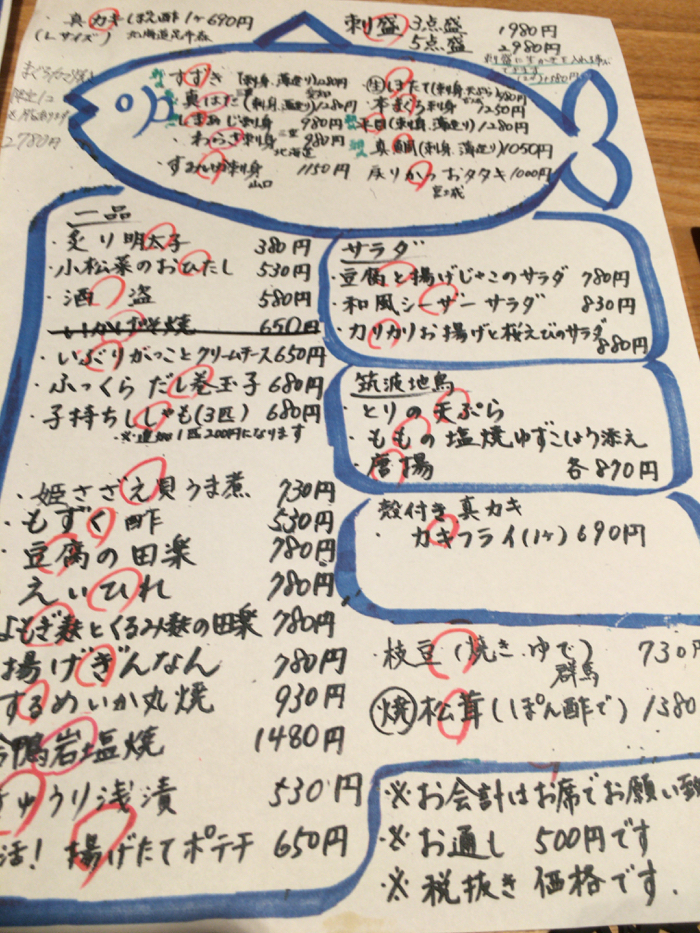 ・真カキ ぽん酢 1ヶ 690円
(Lサイズ)
刺盛 3点盛 1980円
5点盛 2980円
2780円
すずき (刺身、薄造り)
真はた (刺身、薄造り) 1280円
しまあじ刺身 980円
わらさ刺身 980円
北海道
刺身 1150円
山口
生ほたて(刺身、天ぷら)
本まぐろ刺身 1250円
平目(刺身、薄造り) 1280円
真鯛(刺身、薄造り) 1050円
戻りかつおタタキ 1000円
宮城
一品
・炙り明太子 380円
・小松菜のおひたし 530円
・酒盗 580円
650円
・いぶりがっことクリームチーズ 650円
・ふっくらだし巻玉子 680円
・子持ちししゃも(3匹) 680円
※追加1匹200円になります
・姫さざえ貝うま煮 730円
・もずく酢 530円
・豆腐の田楽 780円
・えいひれ 780円
よもぎ麩とくるみ麩の田楽 780円
揚げぎんなん 780円
するめいか丸焼 930円
鴨岩塩焼 1480円
きゅうり浅漬 530円
活! 揚げたてポテチ 650円
サラダ
・豆腐と揚げじゃこのサラダ 780円
・和風シーザーサラダ 830円
・カリカリお揚げと桜えびのサラダ
880円
筑波地鳥
・とりの天ぷら
・ももの塩焼ゆずこしょう添え
・唐揚 各870円
殻付き真カキ
・カキフライ(1ヶ) 690円
・枝豆(焼き、ゆで) 730円
群馬
・焼松茸(ぽん酢で) 1380
※お会計はお席でお願い致
※お通し 500円です
※税抜き価格です.